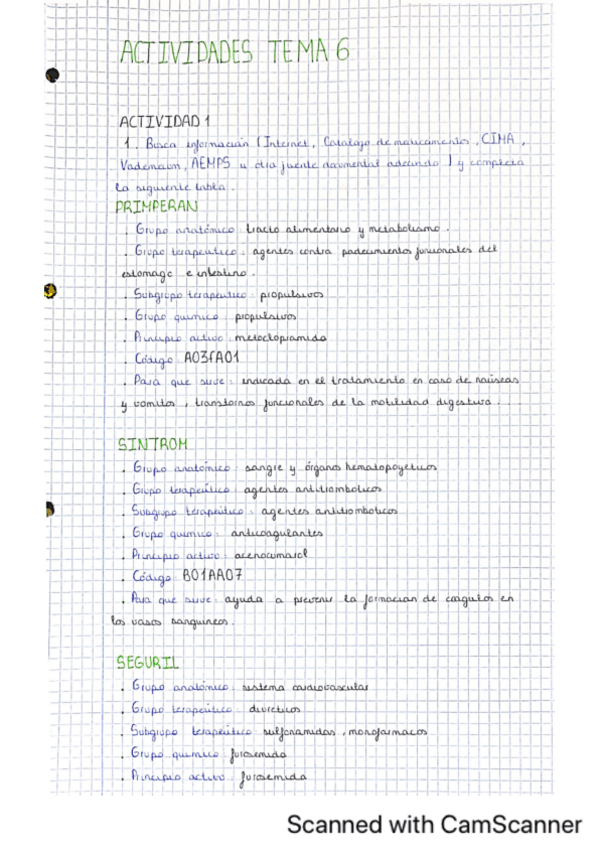 ACTIVIDADES TEMA 6
ACTIVIDAD 1
1. Busca información (Internet, Catalogo de medicamentos, CIMA,
Vademecum, AEMPS u otra fuente documental adecuada) y completa
la siguiente tabla.
PRIMPERAN
. Grupo anatómico: tracto alimentario y metabolismo.
. Grupo terapeutico: agentes contra padecimientos funcionales del
estomago e intestino.
. Subgrupo terapeutico: propulsivos
. Grupo quimico: propulsivos
. Principio activo: metoclopramida
. Código: A03FA01
. Para que sirve: indicada en el tratamiento en caso de naúseas
y vomitos, transtornos funcionales de la motilidad digestiva.
SINTROM
. Grupo anatómico: sangre y órganos hematopoyeticos
. Grupo terapéutico: agentes antitromboticos
. Subgrupo terapéutico: agentes antitromboticos
. Grupo quimico: anticoagulantes
. Principio activo: acenocumarol
. Código: B01AA07
. Para que sirve: ayuda a prevenir la formacion de coagulos en
los vasos sanguineos.
SEGURIL
. Grupo anatómico: sistema cardiovascular
. Grupo terapéutico: diureticos
. Subgrupo terapéutico: sulfonamidas, monofarmacos
. Grupo quimico: furosemida
. Principio activo: furosemida
Scanned with CamScanner